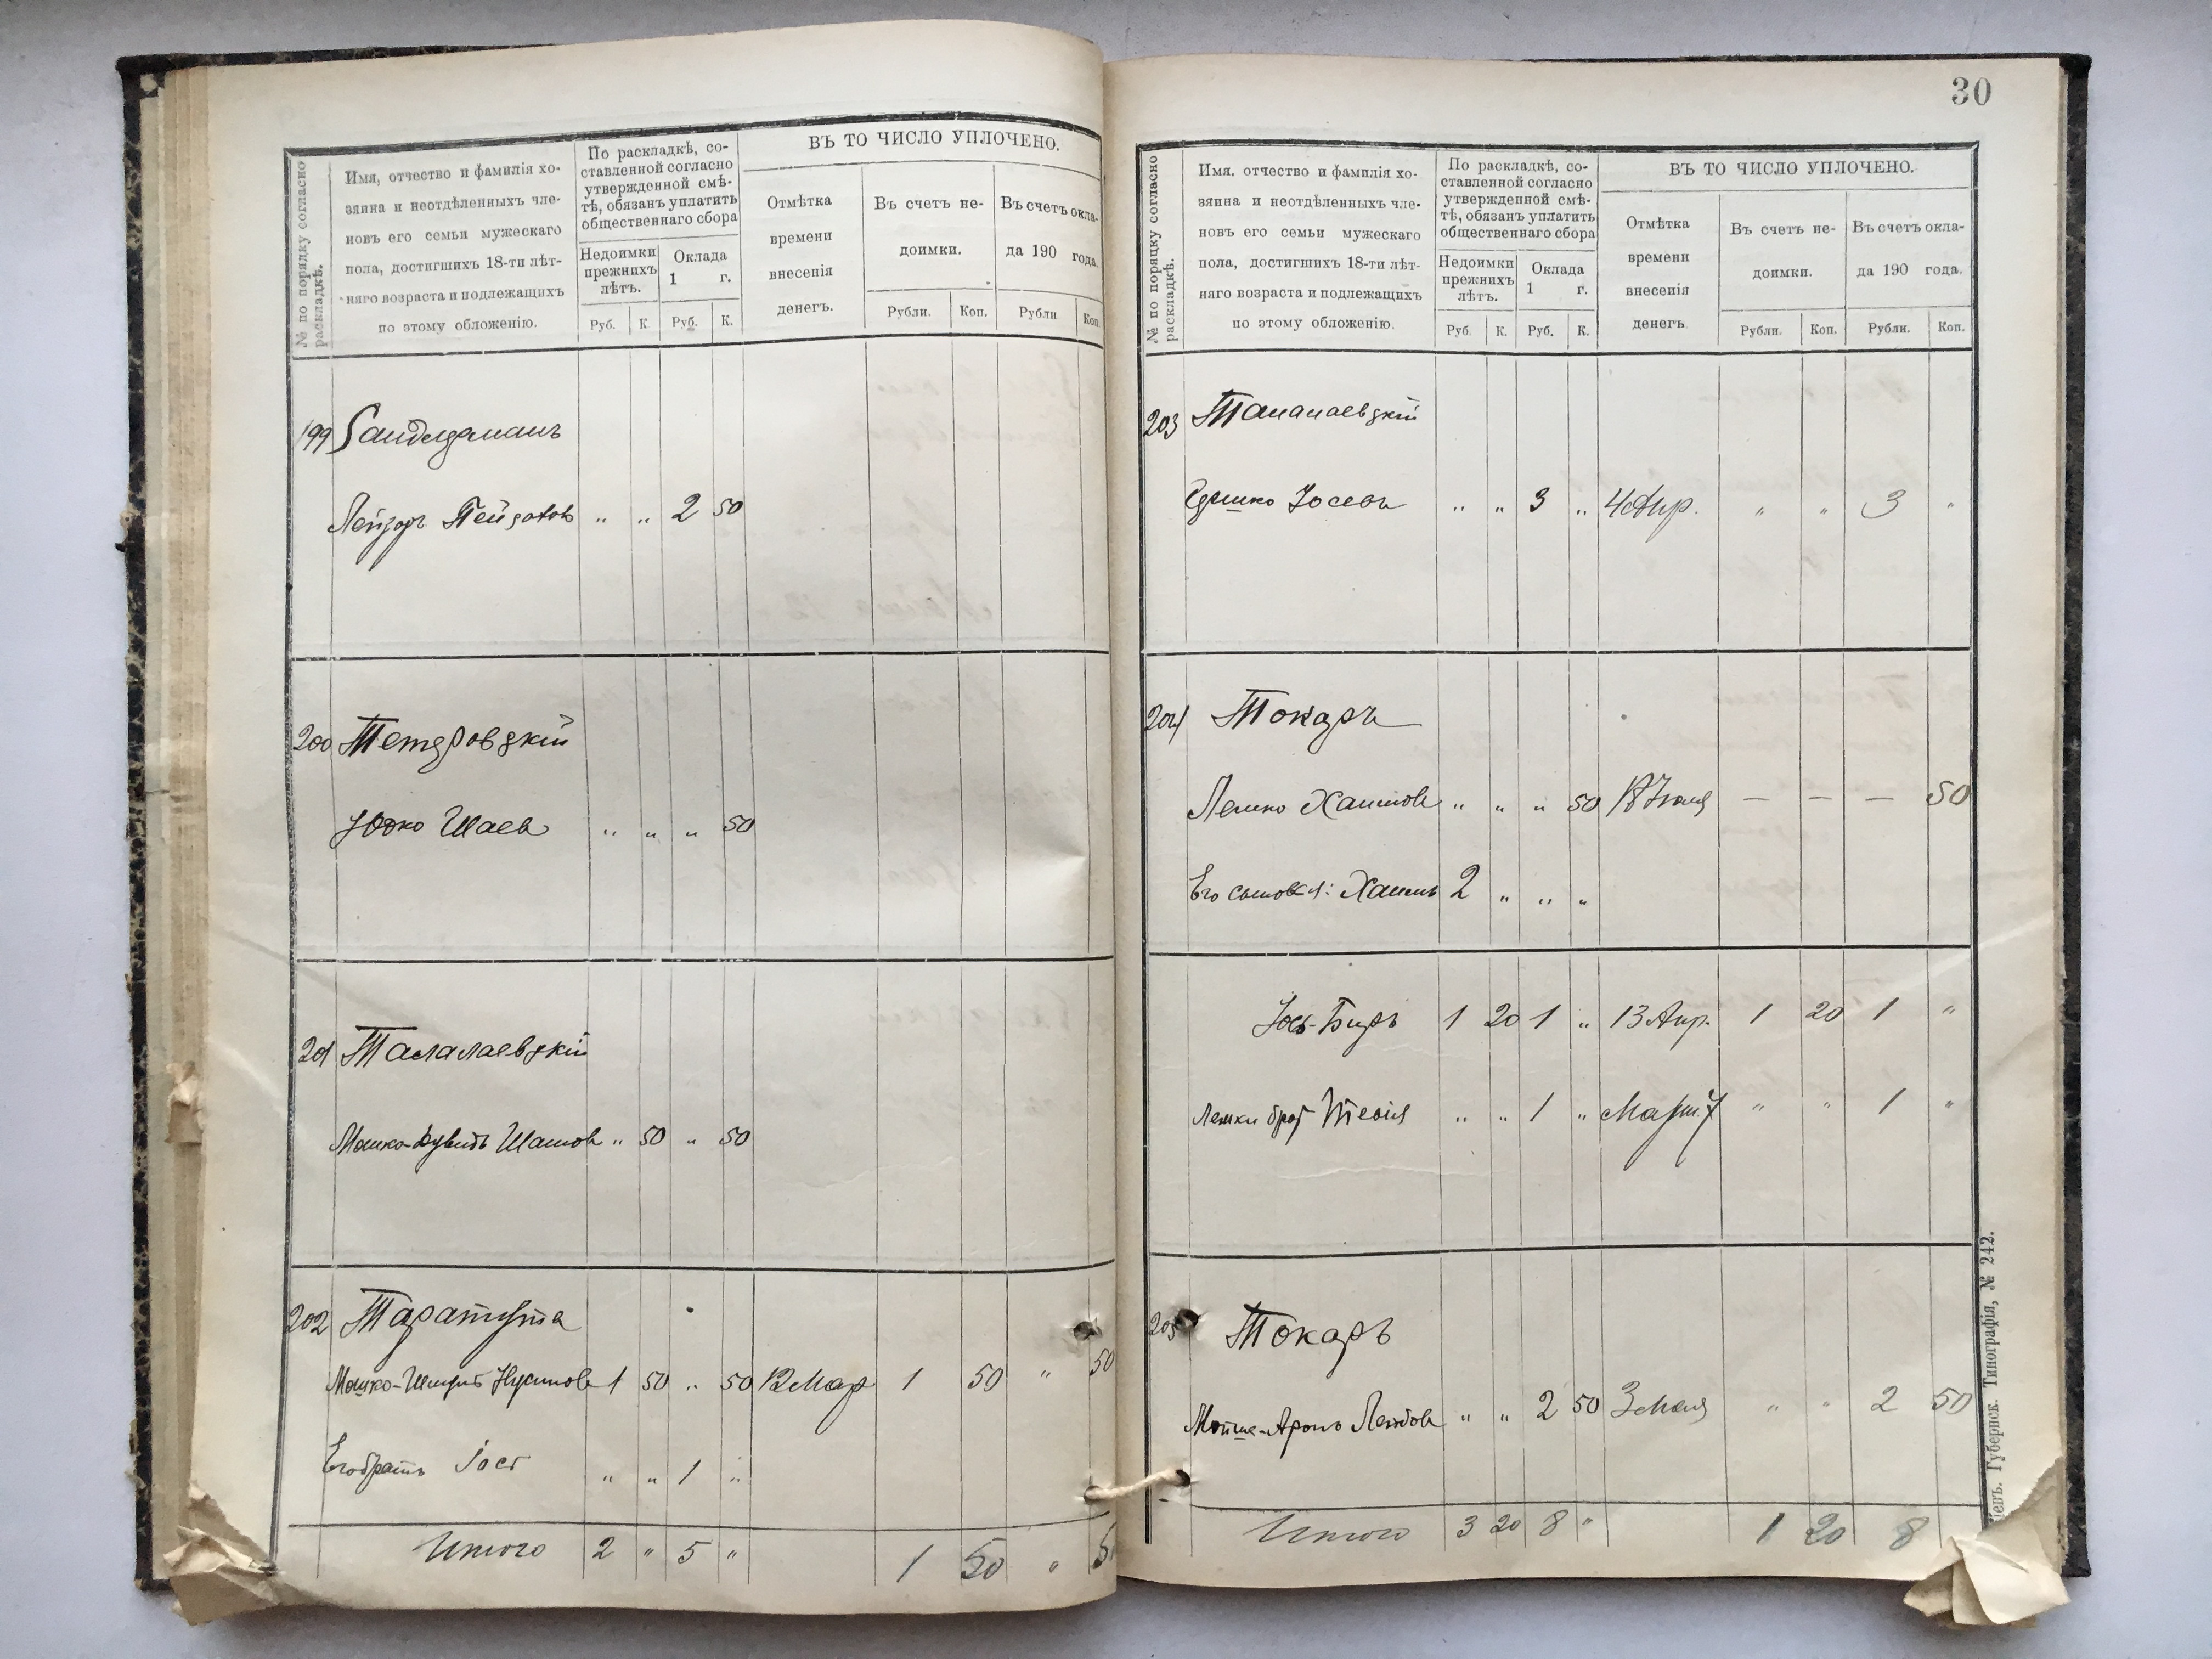 № по порядку согласно раскладкѣ.
Имя, отчество и фамилія хо-
зяина и неотдѣленныхъ чле-
новъ его семьи мужескаго
пола, достигшихъ 18-ти лѣт-
няго возраста и подлежащихъ
по этому обложенію.
По раскладкѣ, со-
ставленной согласно
утвержденной смѣ-
тѣ, обязанъ уплатить
общественнаго сбора
Недоимки
прежнихъ
лѣтъ.
Оклада
1 г.
Руб. К. Руб. К.
ВЪ ТО ЧИСЛО УПЛОЧЕНО.
Отмѣтка
времени
внесенія
денегъ.
Въ счетъ не-
доимки.
Въ счетъ окла-
да 190 года.
Рубли. Коп. Рубли Коп.
199
" " 2 50
200 Тетеровскій
Юдко Шаев " " " 50
201 Талалаевскій
Мошко-Дувидъ " 50 " 50
202 Таратута
Мошко- 1 50 " 50 12 Мар 1 50 " 50
Его братъ Іос " " 1 "
Итого 2 " 5 " 1 50 "
30
№ по порядку согласно раскладкѣ.
Имя. отчество и фамилія хо-
зяина и неотдѣленныхъ чле-
новъ его семьи мужескаго
пола, достигшихъ 18-ти лѣт-
няго возраста и подлежащихъ
по этому обложенію.
По раскладкѣ, со-
ставленной согласно
утвержденной смѣ-
тѣ, обязанъ уплатить
общественнаго сбора
Недоимки
прежнихъ
лѣтъ.
Оклада
1 г.
Руб. К. Руб. К.
ВЪ ТО ЧИСЛО УПЛОЧЕНО.
Отмѣтка
времени
внесенія
денегъ.
Въ счетъ не-
доимки.
Въ счетъ окла-
да 190 года.
Рубли. Коп. Рубли. Коп.
203 Талалаевскій
Іосев " " 3 " 4 Апр. " " 3 "
204 Токаръ
Лемко Хаимов " " " 50 Іюля — — — 50
Его сыновья: Хаимъ 2 " " "
Іось-Беръ 1 20 1 " 13 Апр. 1 20 1 "
Лемки брат " " 1 " " " 1 "
205 Токаръ
Мойше-Аронъ Лейбов " " 2 50 3 Мая " " 2 50
Итого 3 20 8 " 1 20 8
Губернск. Типографія, № 242.